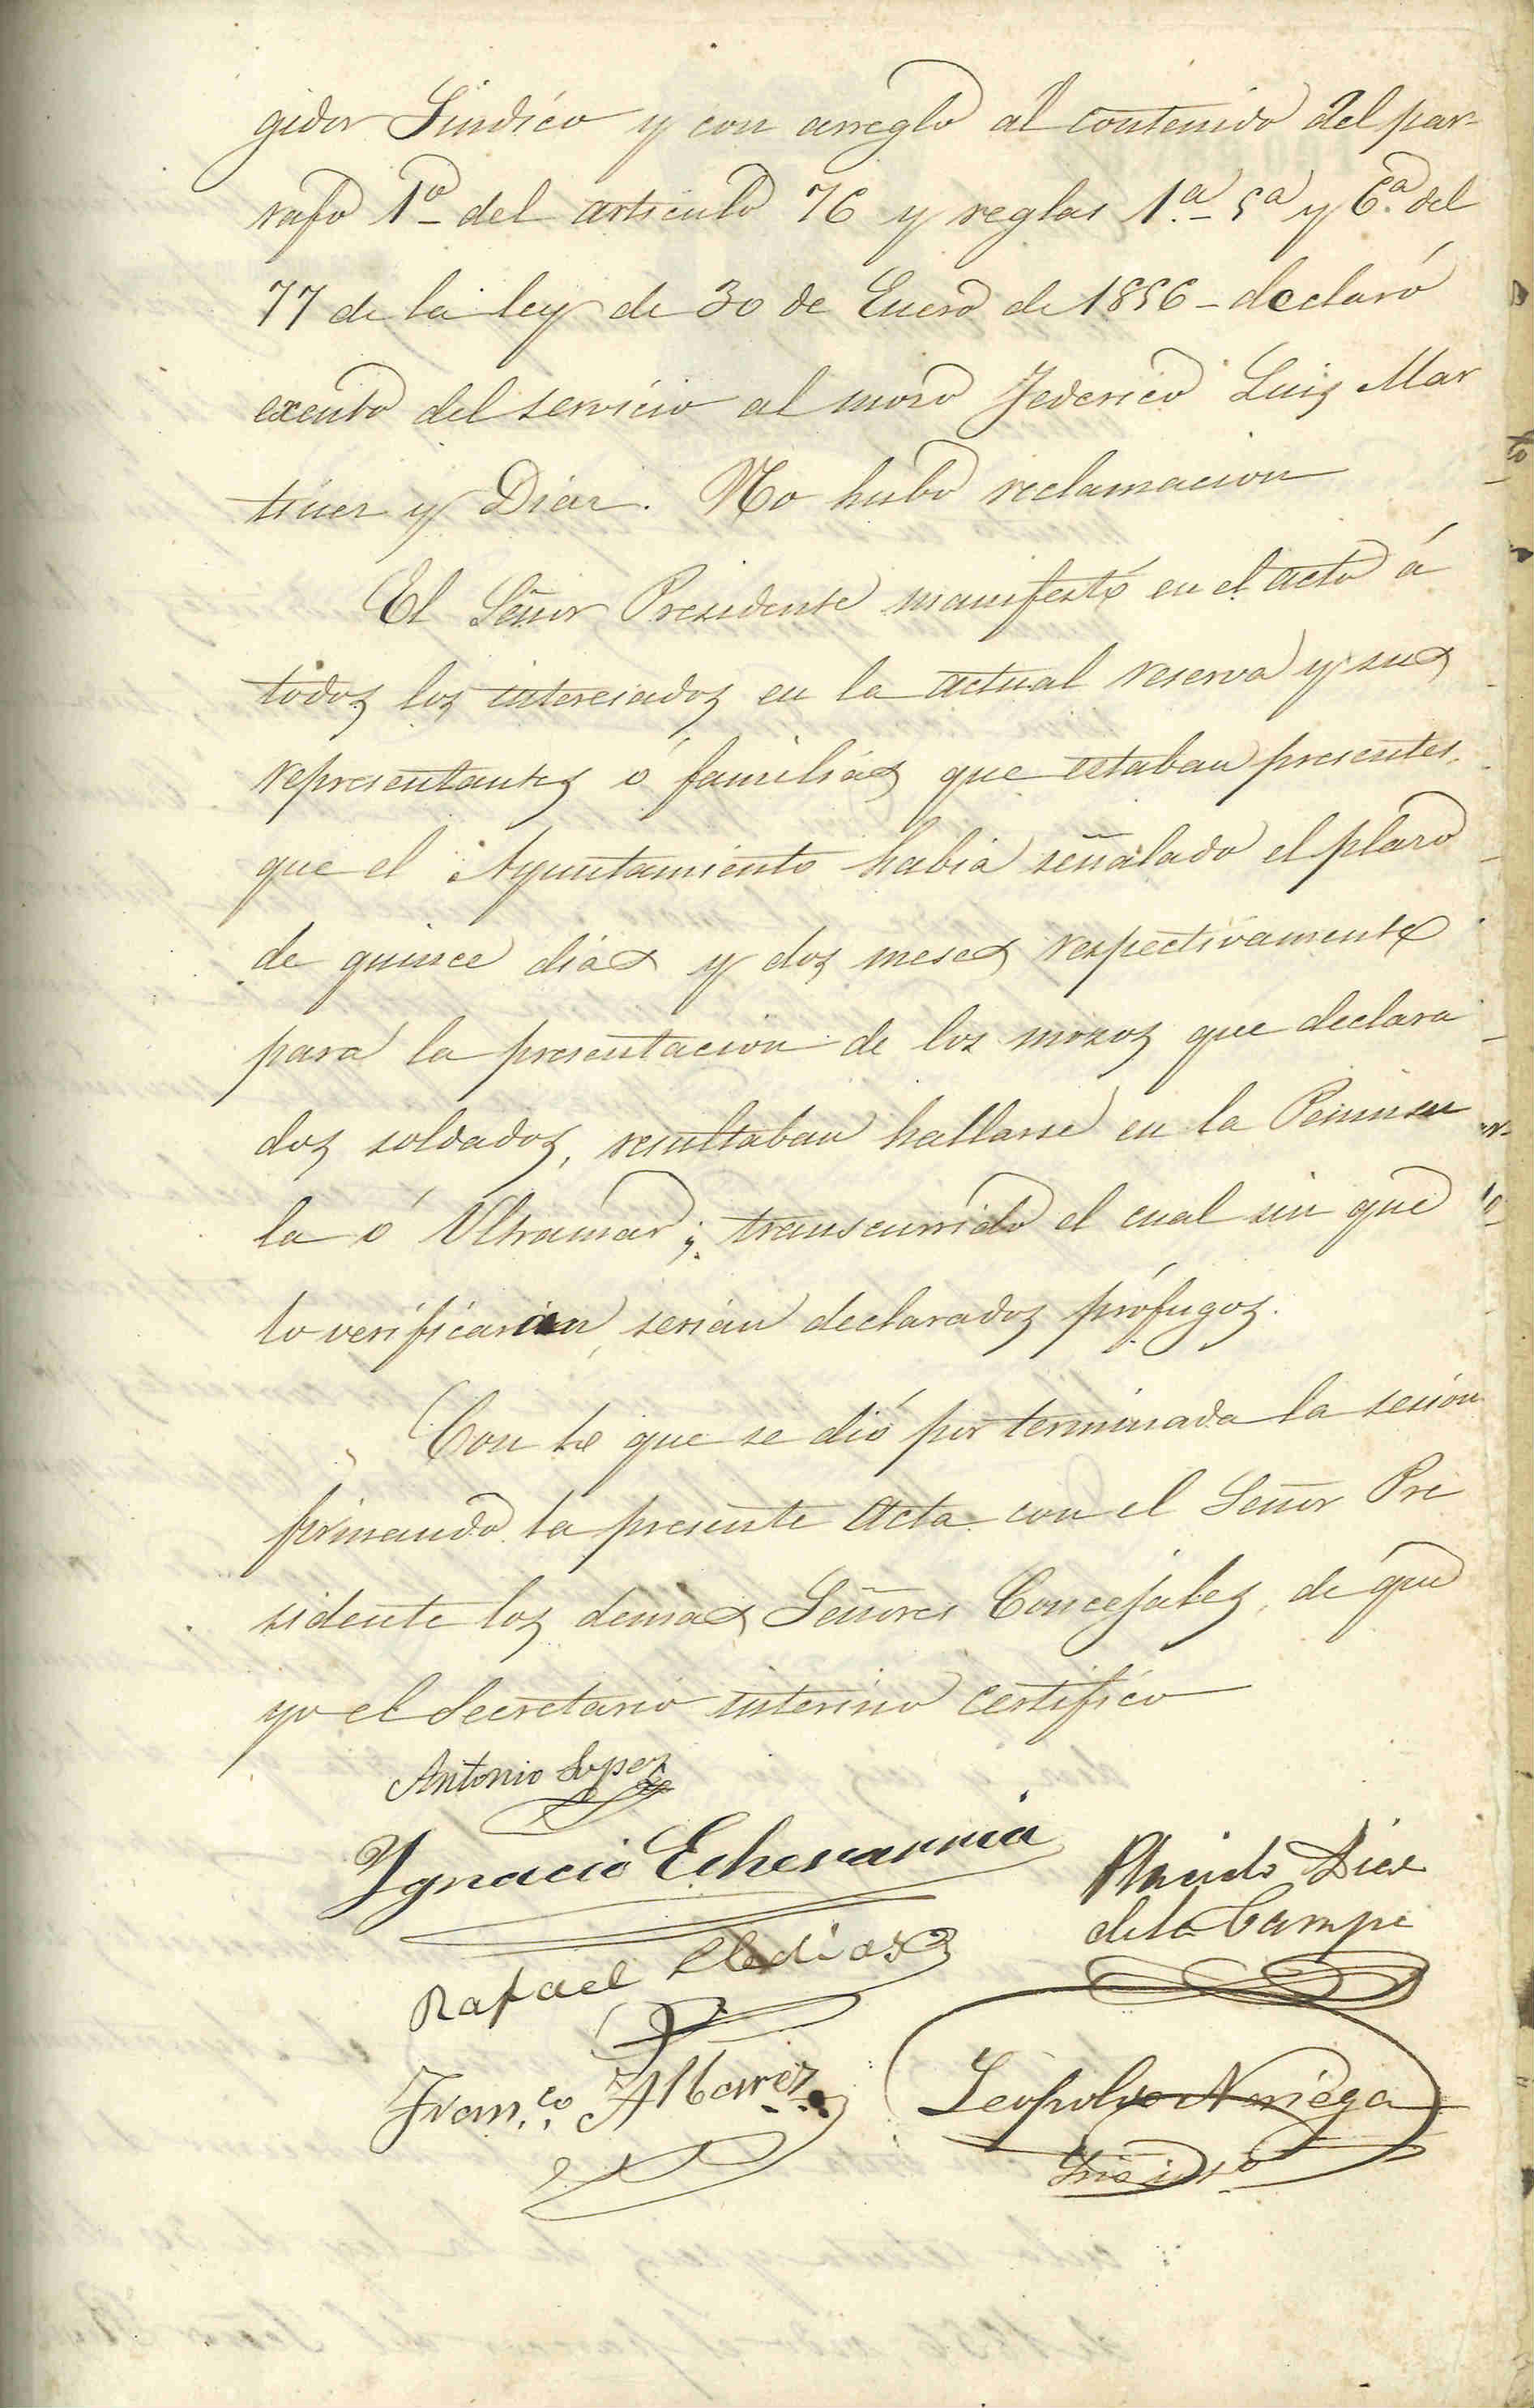 gidor Sindico y con arreglo al contenido del par-
rafo 1º del articulo 76 y reglas 1.ª 5ª y 6.ª del
77 de la ley de 30 de Enero de 1856 - declaró
exento del servicio al mozo Federico Luis Mar
tinez y Diaz. No hubo reclamacion
El Señor Presidente manifestó en el acto á
todos los interesados en la actual reserva y sus
representantes ó familias que estaban presentes,
que el Ayuntamiento habia señalado el plazo
de quince dias y dos meses respectivamente
para la presentacion de los mozos que declara
dos soldados, resultaban hallarse en la Peninsu
la ó Ultramar; transcurrido el cual sin que
lo verificaran, serian declarados prófugos.
Con lo que se dió por terminada la sesion
firmando la presente Acta con el Señor Pre
sidente los demas Señores Concejales, de que
yo el Secretario interino certifico
Antonio Lopez
Ygnacio Echevarria
Placido Diez
de la Campa
Rafael
Fran.co Albarez
Leopoldo Noriega